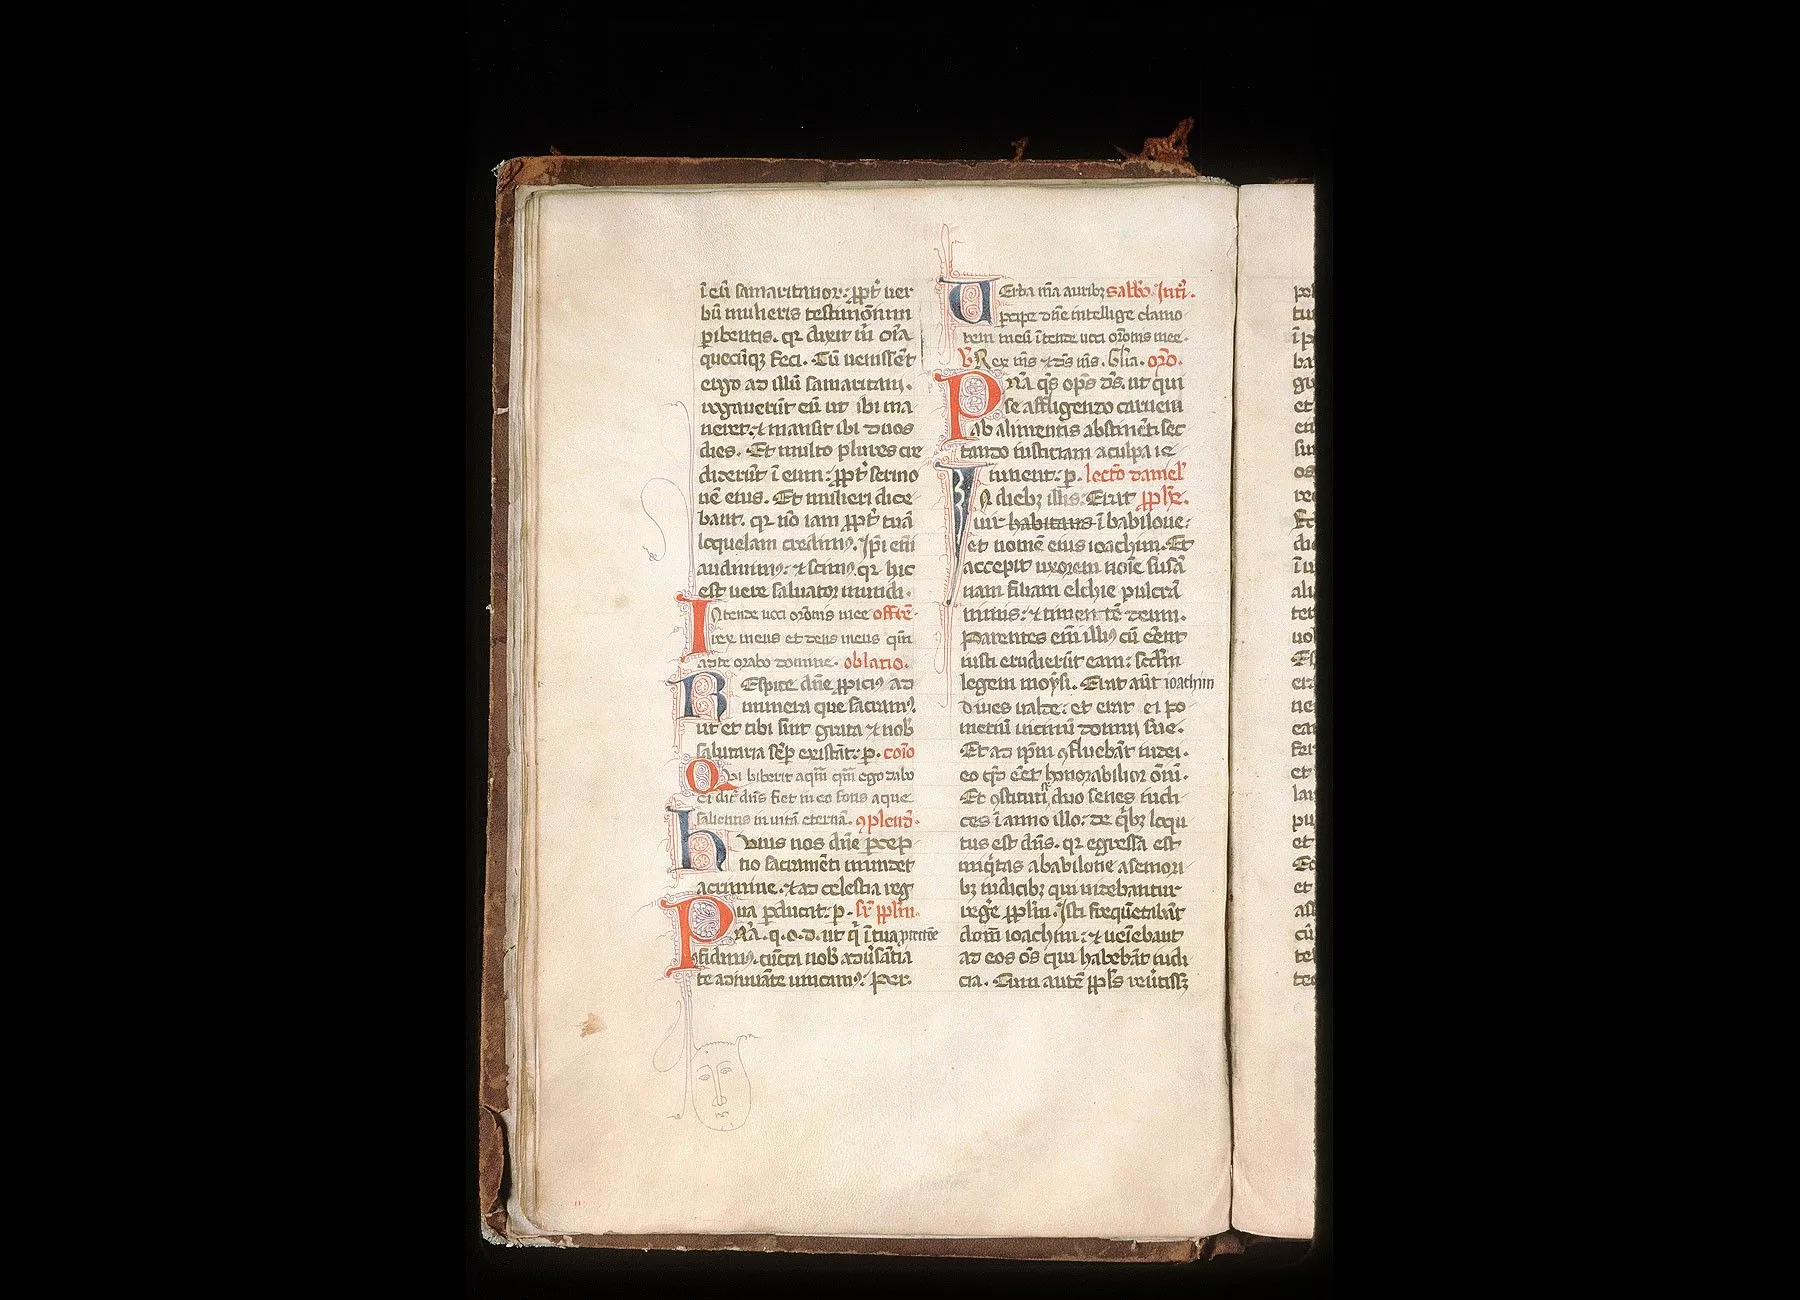 ī eū samaritanoꝝ: ꝓpt̉ uer
bū mulieris testimoniūm
ꝑhibentis. qꝛ dixit m̄ oīa
quecūqꝫ feci. Cū uenissēt
ergo ad illū samaritani.
rogauerūt eū ut ibi ma
neret: ⁊ mansit ibi duos
dies. Et multo plures cre
diderūt ī eum: ꝓpt̉ sermo
nē eius. Et mulieri dice
bant. qꝛ nō iam ꝓpt̉ tuā
loquelam credimꝰ. Ip̄i eni
audiuimꝰ: ⁊ scimꝰ qꝛ hic
est uere saluator mundi.
Intende uoci orōnis mee offr̄e.
rex meus et deus meus qm̄
ad te orabo domine. oblatio.
Respice dn̄e ꝓpiciꝰ ad
munera que sacramꝰ.
ut et tibi sint grata ⁊ nob̄
salutaria sēp existāt: p. cōio
Qui biberit aquā quā ego dabo
ei dic̄ dn̄s fiet in eo fons aque
salientis in uitā eternā. ꝯplend̄.
Huius nos dn̄e ꝑcep
tio sacramēti mundet
a crimine. ⁊ ad celestia reg
na ꝑducat: p. sr̄ ppl̄m.
PRA. q. o. d. ut q̄ ī tua protectōe
ꝯfidimꝰ. cūcta nob̄ aduersātia
te adiuuāte uincamꝰ: Per.
Uerba m̄a auribꝫ sabb̄o Intr̄.
ꝑcipe dn̄e intellige clamo
rem meū ītende uoci orōnis mee.
℣ Rex m̄s ⁊ ds̄ m̄s. Gl̄ia. or̄o.
PRA qs̄ ops̄ ds̄. ut qui
se affligendo carnem
ab alimentis abstinēt: sec
tando iusticiam a culpa ie
iunent: p. lectō daniel̄
In diebꝫ illis: Erat ꝓph̄e.
uir habitans ī babilone:
et nomē eius ioachim. Et
accepit uxorem noīe susā
nam filiam elchie pulcrā
nimis: ⁊ timentē deum.
Parentes eni illiꝰ cū eēnt
iusti erudierūt eam: scdm̄
legem moysi. Erat aūt ioachim
diues ualde: et erat ei po
meriū uicinū domui sue.
Et ad ip̄m ꝯfluebāt iudei.
eo qd̄ eēt honorabilior oīu.
Et ꝯstituti st̄ duo senes iudi
ces ī anno illo: de qͥbꝫ locu
tus est dn̄s. qꝛ egressa est
iniqͥtas a babilone a senori
bꝫ iudicibꝫ qui uidebantur
regere ppl̄m. Isti frequētabāt
domū ioachim: ⁊ ueniebant
ad eos oēs qui habebāt iudi
cia. Cum autē ppl̄s reuertissꝫ